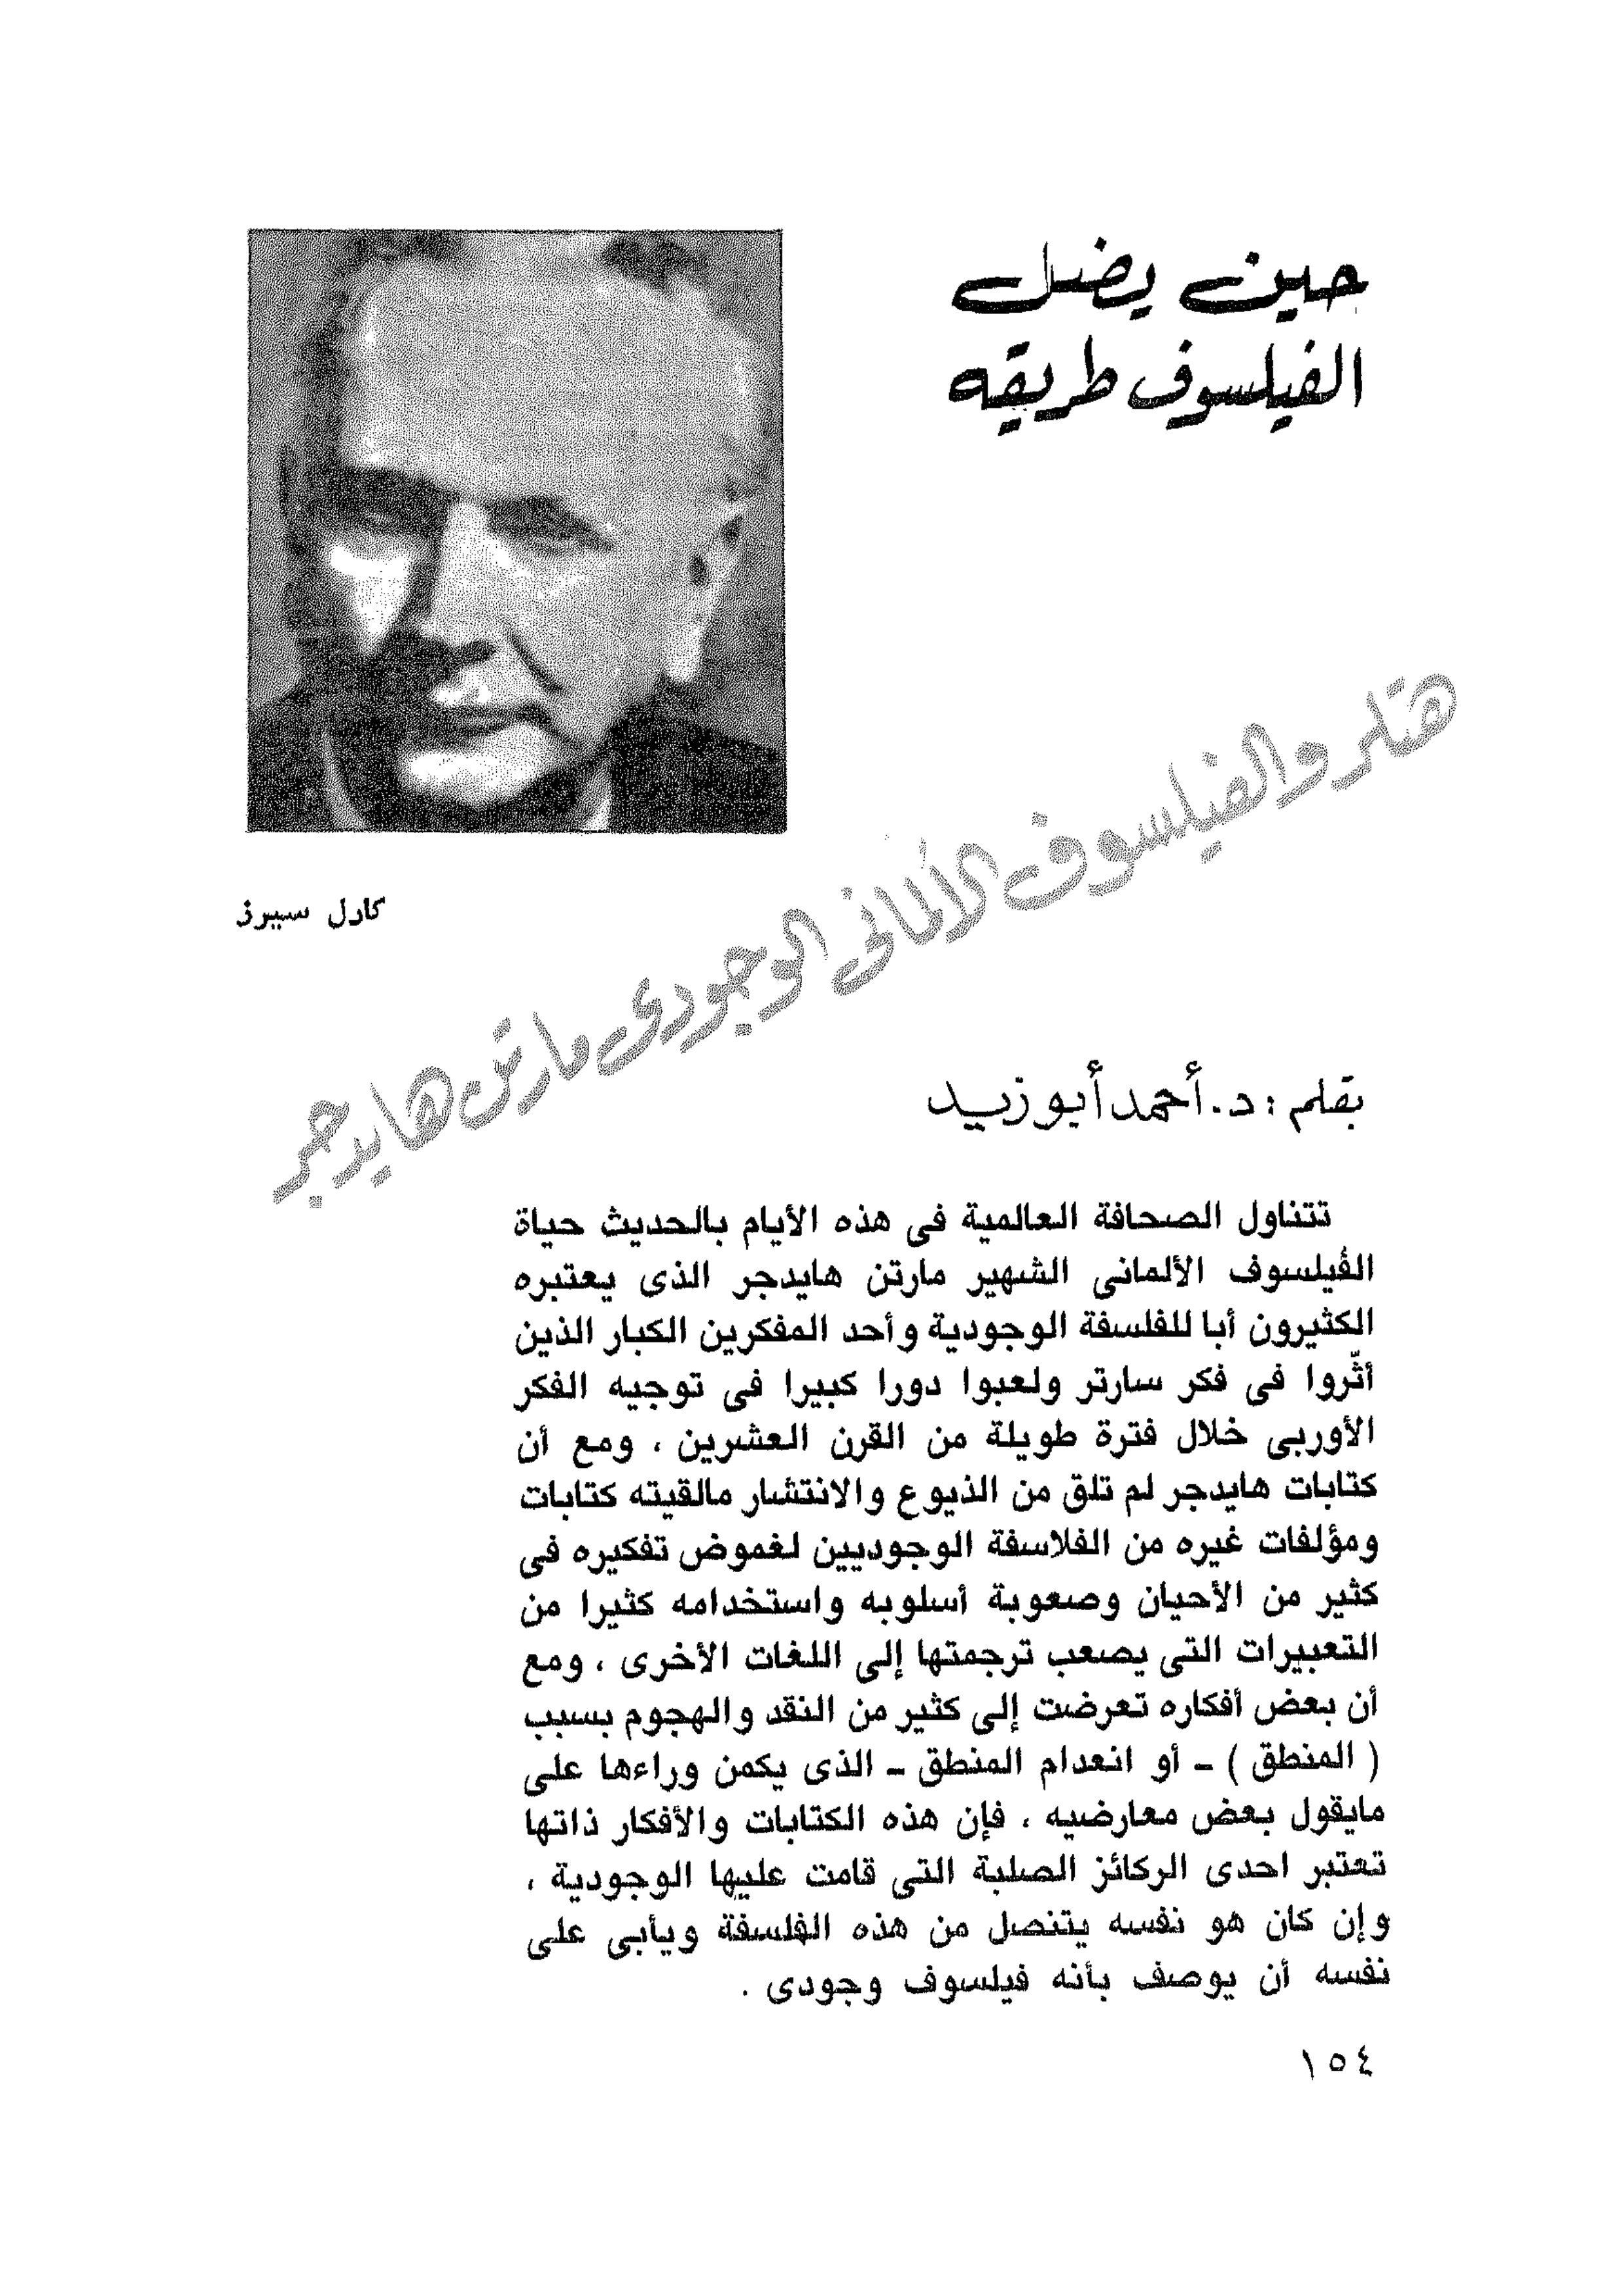 حين يضل
الفيلسوف طريقه
كارل سيرز
هتلر والفيلسوف الألمانى الوجودى مارتن هايدجر
بقلم : د. أحمد أبو زيد
تتناول الصحافة العالمية فى هذه الأيام بالحديث حياة
الفيلسوف الألمانى الشهير مارتن هايدجر الذى يعتبره
الكثيرون أبا للفلسفة الوجودية وأحد المفكرين الكبار الذين
أثّروا فى فكر سارتر ولعبوا دورا كبيرا فى توجيه الفكر
الأوربى خلال فترة طويلة من القرن العشرين ، ومع أن
كتابات هايدجر لم تلق من الذيوع والانتشار مالقيته كتابات
ومؤلفات غيره من الفلاسفة الوجوديين لغموض تفكيره فى
كثير من الأحيان وصعوبة أسلوبه واستخدامه كثيرا من
التعبيرات التى يصعب ترجمتها إلى اللغات الأخرى ، ومع
أن بعض أفكاره تعرضت إلى كثير من النقد والهجوم بسبب
( المنطق ) - أو انعدام المنطق - الذى يكمن وراءها على
مايقول بعض معارضيه ، فإن هذه الكتابات والأفكار ذاتها
تعتبر احدى الركائز الصلبة التى قامت عليها الوجودية ،
وإن كان هو نفسه يتنصل من هذه الفلسفة ويأبى على
نفسه أن يوصف بأنه فيلسوف وجودى .
١٥٤